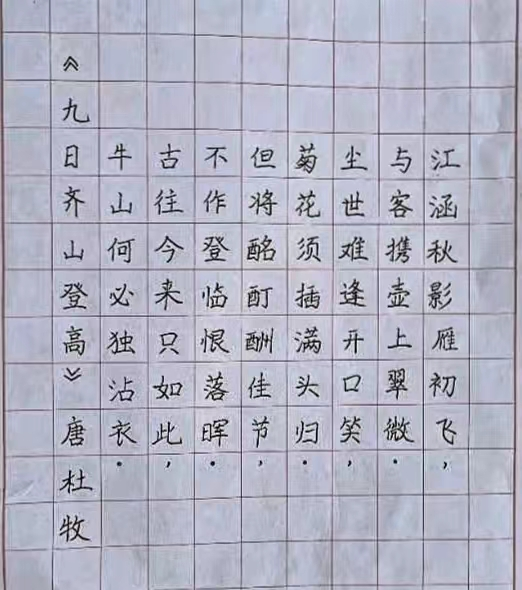 江涵秋影雁初飞，
与客携壶上翠微．
尘世难逢开口笑，
菊花须插满头归．
但将酩酊酬佳节，
不作登临恨落晖．
古往今来只如此，
牛山何必独沾衣．
《九日齐山登高》唐杜牧